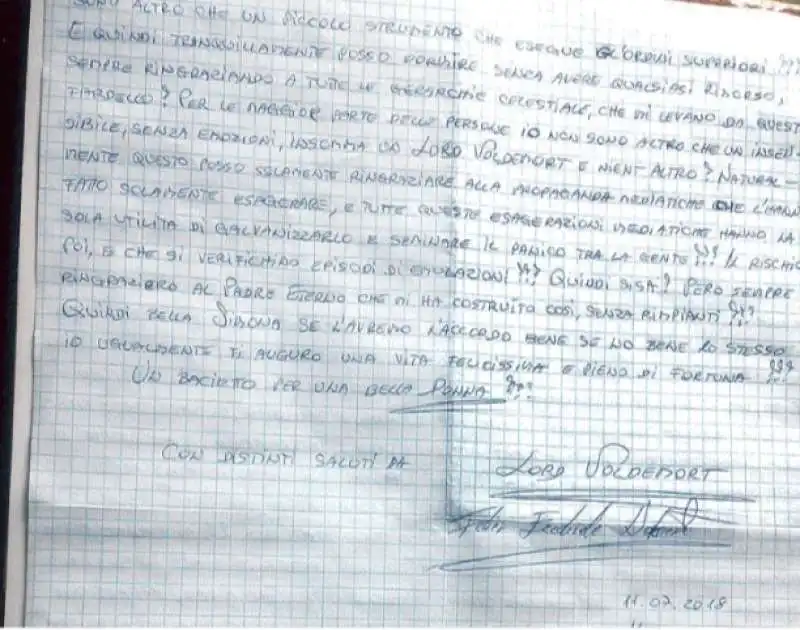 SONO ALTRO CHE UN PICCOLO STRUMENTO CHE ESEGUE GL'ORDINI SUPERIORI ???
E QUINDI TRANQUILLAMENTE POSSO DORMIRE SENZA AVERE QUALSIASI RIMORSO,
SEMPRE RINGRAZIANDO A TUTTE LE GERARCHIE CELESTIALE, CHE MI LEVANO DA QUEST
FIARDELLO? PER LE MAGGIOR PARTE DELLE PERSONE IO NON SONO ALTRO CHE UN INSEN-
SIBILE, SENZA EMOZIONI, INSOMMA UN LORD VOLDEMORT E NIENT'ALTRO? NATURAL-
MENTE QUESTO POSSO SOLAMENTE RINGRAZIARE ALLA PROPAGANDA MEDIATICHE CHE L'HANN
FATTO SOLAMENTE ESAGERARE, E TUTTE QUESTE ESAGERAZIONI MEDIATICHE HANNO LA
SOLA UTILITA DI GALVANIZZARLO E SEMINARE IL PANICO TRA LA GENTE ?!? IL RISCHIO
POI, E CHE SI VERIFICHINO EPISODI DI EMULAZIONI ??? QUINDI PERO SEMPRE
RINGRAZIERO AL PADRE ETERNO CHE MI HA COSTRUITO COSI, SENZA RIMPIANTI ???
QUINDI BELLA SIMONA SE L'AVREMO L'ACCORDO BENE SE NO BENE LO STESSO
IO UGUALMENTE TI AUGURO UNA VITA FELICISSIMA E PIENO DI FORTUNA ???
UN BACIETTO PER UNA BELLA DONNA ???
CON DISTINTI SALUTI DA LORD VOLDEMORT
11.07.2018